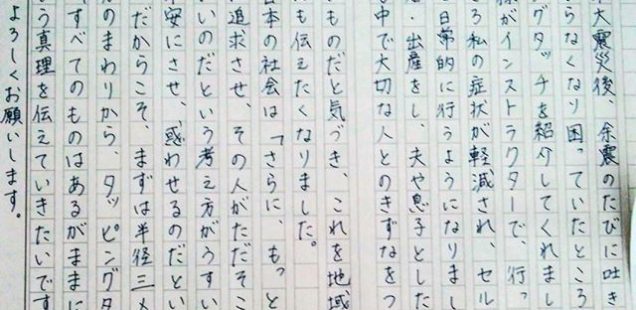 大震災後、余震のたびに吐き
らなくなり困っていたところ
グタッチを紹介してくれまし
様がインストラクターで、行っ
ろ私の症状が軽減され、セル
日常的に行うようになりまし
・出産をし、夫や息子とした
中で大切な人とのきずなをつ
ものだと気づき、これを地域
も伝えたくなりました。
日本の社会は「さらに、もっと
追求させ、その人がただそこ
いのだという考え方がうすい
安にさせ、惑わせるのだとい
だからこそ、まずは半径三メ
のまわりから、タッピングタ
すべてのものはあるがままに
う真理を伝えていきたいです
よろしくお願いします。